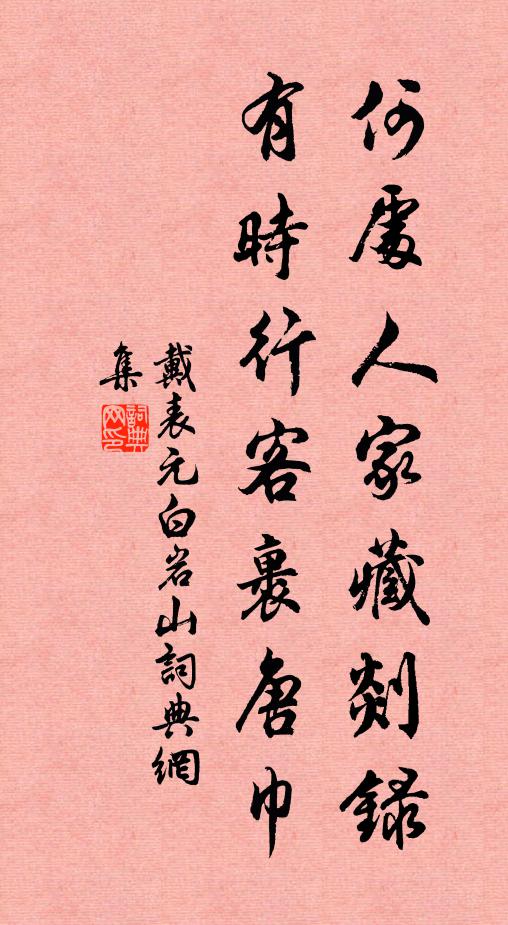 何處人家藏剡錄
有時行客裹唐巾
戴表元白岩山詞典網
集
詞典網印